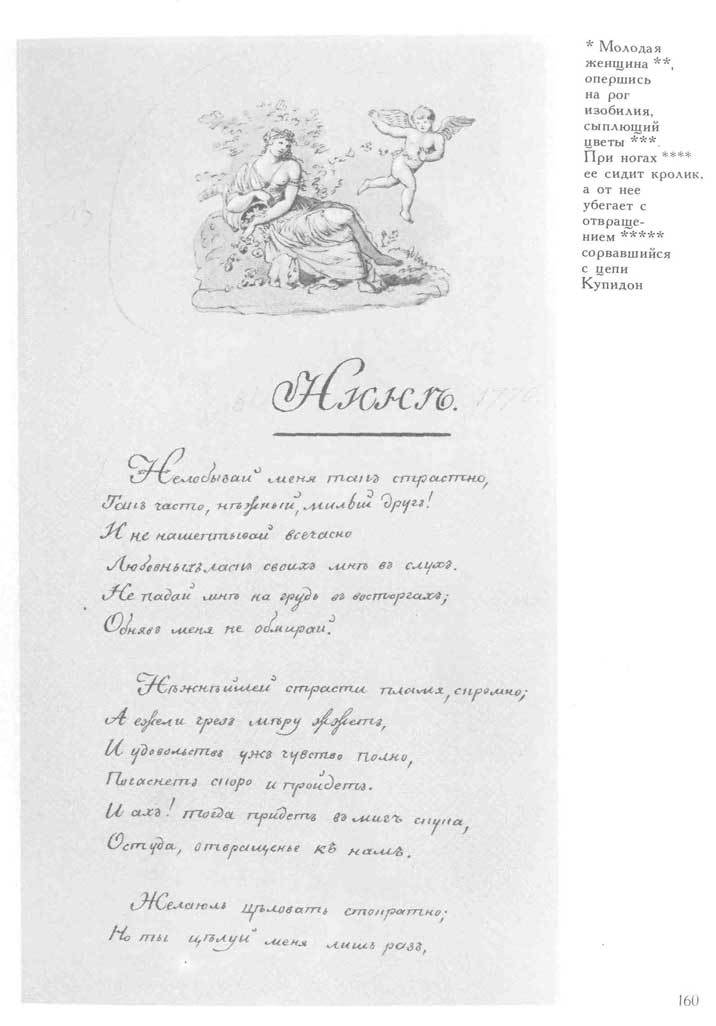 * Молодая
женщина **,
опершись
на рог
изобилия,
сыплющий
цветы ***.
При ногах ****
ее сидит кролик,
а от нее
убегает с
отвраще-
нием *****
сорвавшийся
с цепи
Купидон
Нинѣ.
Нелобывай меня такъ страстно,
Такъ часто, нѣжный, милый другъ!
И не нашептывай всечасно
Любовныхъ ласкъ своихъ мнѣ въ слухъ.
Не падай мнѣ на грудь въ восторгахъ;
Обнявъ меня не обмирай.
Нѣжнѣйшей страсти пламя, скромно;
А ежели чрезъ мѣру жжетъ,
И удовольствъ ужъ чувство полно,
Погаснетъ скоро и пройдетъ.
И ахъ! тогда придетъ въ мигъ скука,
Остуда, отвращенье къ намъ.
Желаюль цѣловать стократно;
Но ты цѣлуй меня лишь разъ,
160